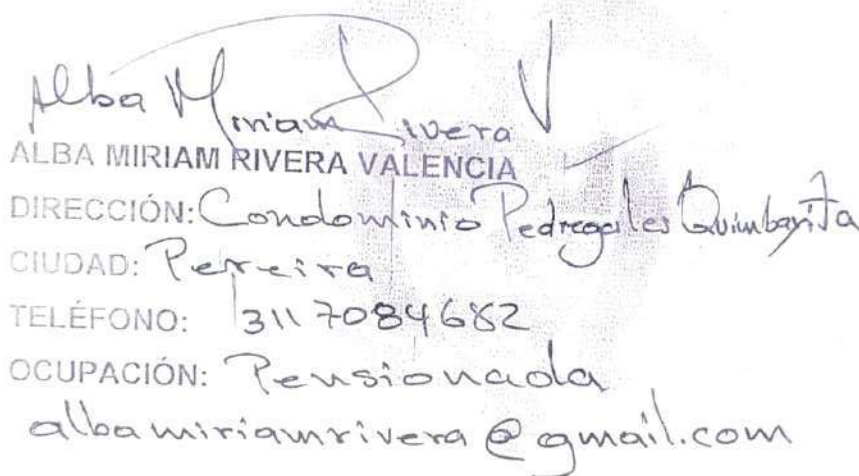 Alba Miriam Rivera V
ALBA MIRIAM RIVERA VALENCIA
DIRECCIÓN: Condominio Pedregales Quimbayita
CIUDAD: Pereira
TELÉFONO: 3117084682
OCUPACIÓN: Pensionada
albamiriamrivera@gmail.com